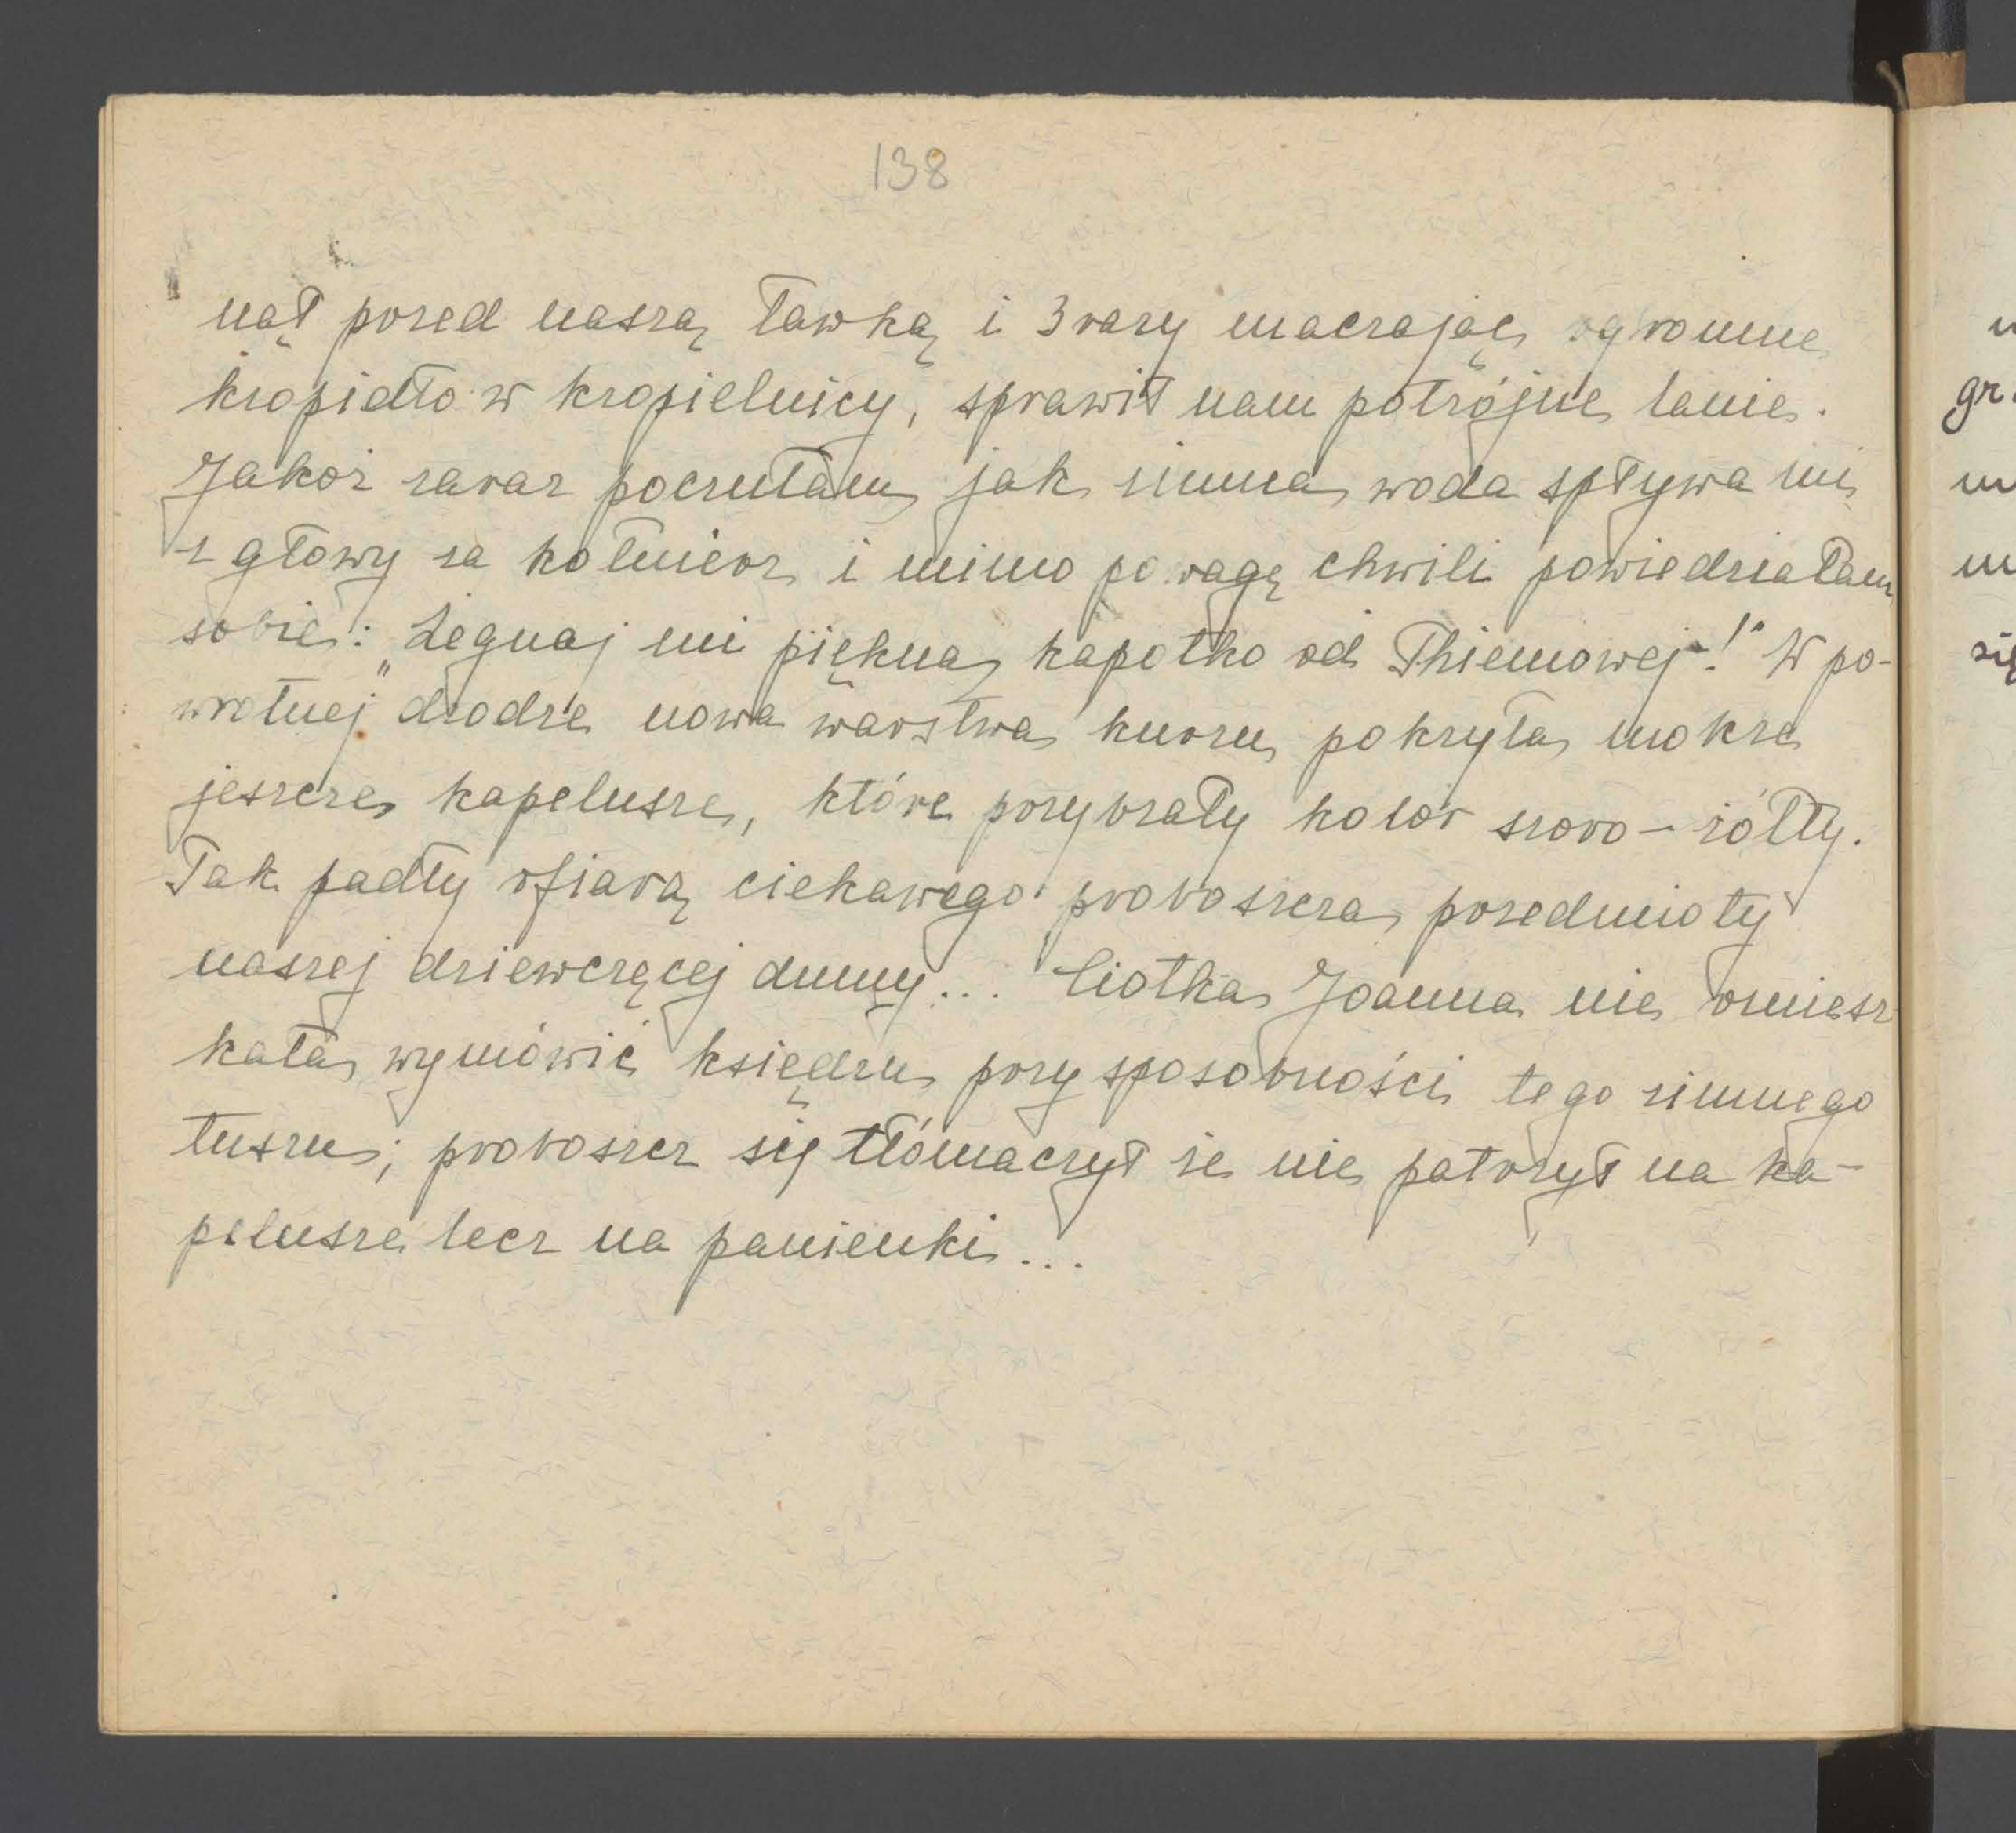 138
nął przed naszą ławką i 3 razy maczając ogromne
kropidło w kropielnicy, sprawił nam potrójne lanie.
Jakoż zaraz poczułam jak zimna woda spływa mi
z głowy za kołnierz i mimo powagę chwili powiedziałam
sobie: „Żegnaj mi piękna kapotko od Thiemowej!" W po-
wrotnej drodze nowa warstwa kurzu pokryła mokre
jeszcze kapelusze, które przybrały kolor szaro-żółty.
Tak padły ofiarą ciekawego proboszcza przedmioty
naszej dziewczęcej dumy... Ciotka Joanna nie omiesz
kała wymówić księdzu przy sposobności tego zimnego
tuszu; proboszcz się tłómaczył że nie patrzył na ka-
pelusze lecz na panienki...
gr.
się